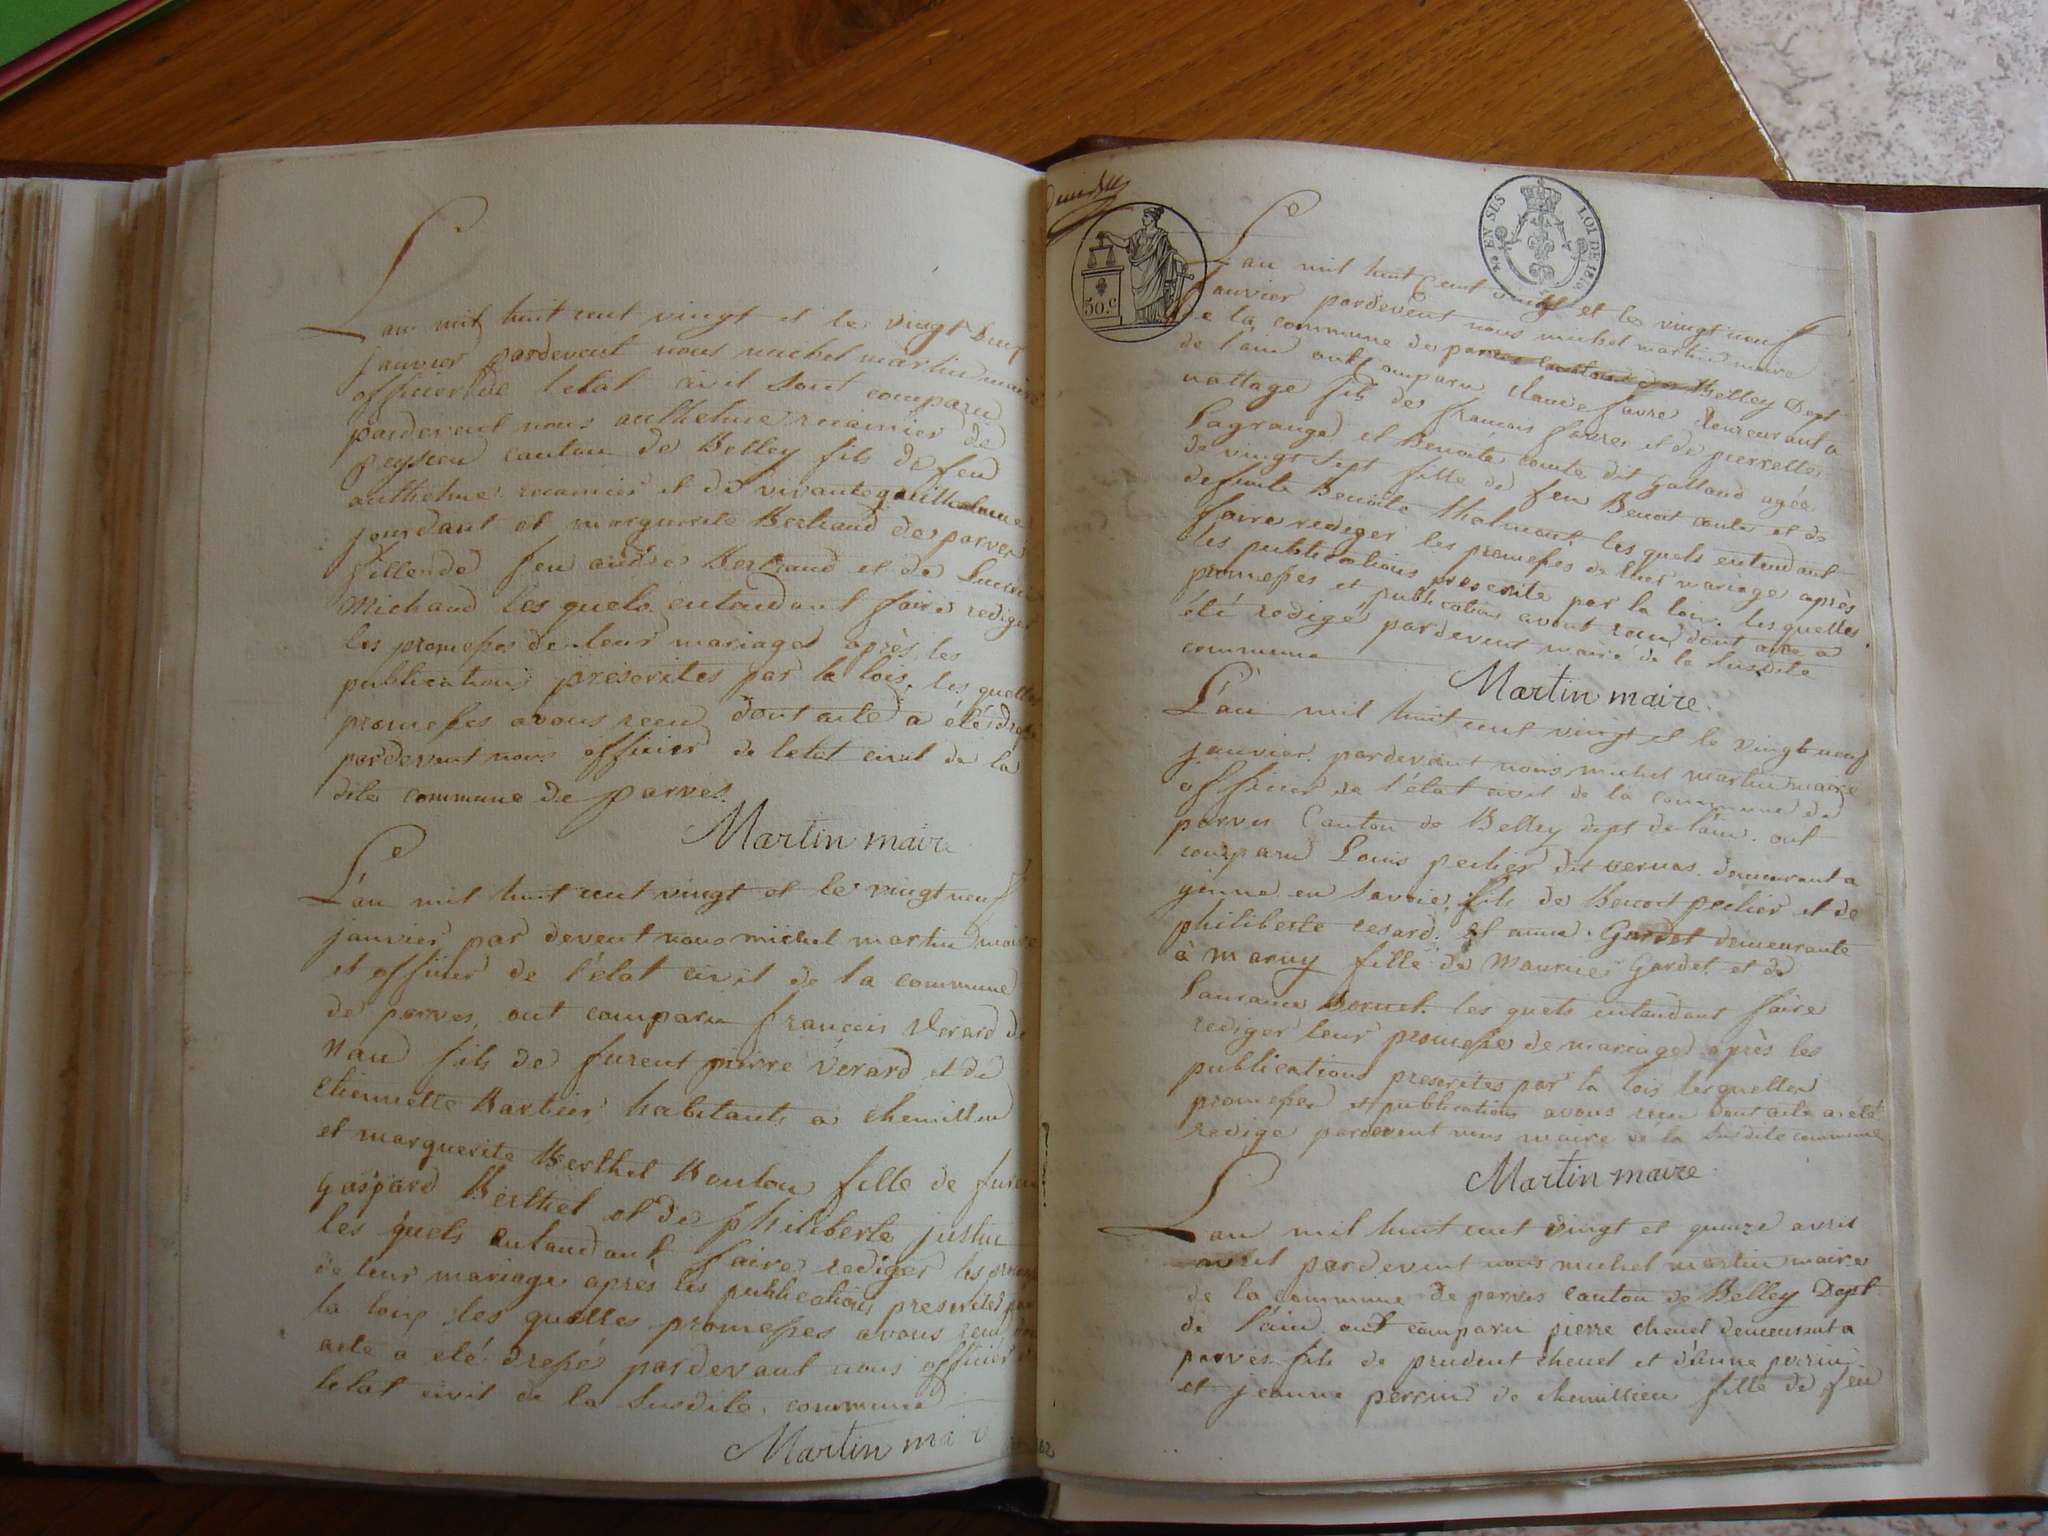 L'an mil huit cent vingt et le vingt Deux
janvier pardevent nous michel martin maire
officier de letat civil sont comparu
pardevent nous anthelme recamier de
peysieu canton de Belley fils de feu
anthelme recamier et de vivante guilhelmine
jourdant et marguerite Bertrand de parves
fille de feu andré Bertrand et de
Michaud les quels entendant faire rediger
les promesses de leur mariage après les
publications prescrites par la lois. les quelles
promesses avons recu dont acte a été
pardevent nous officier de letat civil de la
dite commune de parves.
Martin maire
L'an mil huit cent vingt et le vingt neuf
janvier par devent nous michel martin maire
et officier de l'état civil de la commune
de parves, ont comparu françois Verard de
Nau fils de furent pierre Verard et de
Etiennette Barbier habitants a chemillieu
et marguerite Berthet Bouton fille de furent
gaspard Berthet et de philiberte justin
les quels entandant faire rediger les
de leur mariage après les publications prescrites par
la loix les quelles promesses avons recu
acte a été dressé pardevant nous officier
letat civil de la Susdite commune
Martin maire
50.c
EN SUS LOI DE 1816
L'an mil huit Cent vingt et le vingt neuf
janvier pardevent nous michel martin maire
de la commune de parves canton de Belley Dept
de l'ain ont comparu claude favre demeurant a
nattage fils de francois favre et de pierrette
Lagrange et Benoite conte dit Galland agée
de vingt sept fille de feu Benoit conte et de
defunte Benoite thelmont les quels entendant
faire rediger les promesses de leur mariage après
les publications prescrite par la loix. les quelles
promesses et publications avont recu dont acte a
été redigé pardevent maire de la Susdite
commune
Martin maire.
L'an mil huit cent vingt et le vingt neuf
janvier pardevant nous michel martin maire
officier de l'état civil de la commune de
parves Canton de Belley dept de l'ain. ont
comparu Louis pechier dit vernas. demeurant a
yenne en Savoie, fils de Benoit pechier et de
philiberte cesard. et anne. Gardet demeurante
à maruy fille de Maurice Gardet et de
Laurance les quels entandant faire
rediger leur promesse de mariage après les
publications prescrites par la lois lesquelles
promesses et publications avons recu dont acte a été
redigé pardevent nous maire de la susdite commune
Martin maire.
L'an mil huit cent vingt et quinze avril
pardevent nous michel martin maire
de la commune de parves Canton de Belley Dept
de l'ain. ont comparu pierre chenet demeurant a
parves fils de prudent chenet et d'anne perrin
et jeanne perrin de chemillieu fille de feu